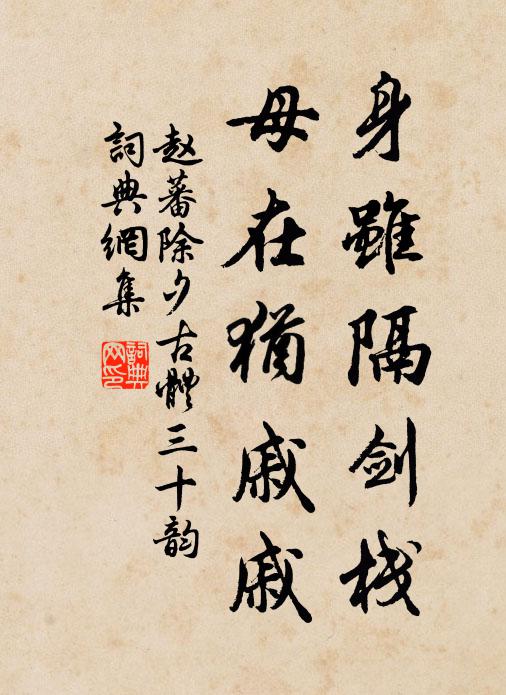 身雖隔劍棧
母在猶戚戚
赵蕃除夕古體三十韵
詞典網集
詞典網印